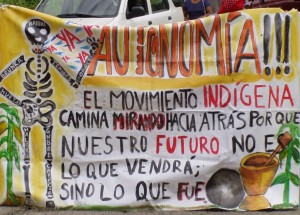 YA YA
YA
¡AUTONOMÍA!!!
EL MOVIMIENTO INDÍGENA
CAMINA MIRANDO HACIA ATRÁS POR QUE
NUESTRO FUTURO NO ES
LO QUE VENDRÁ;
SINO LO QUE FUE